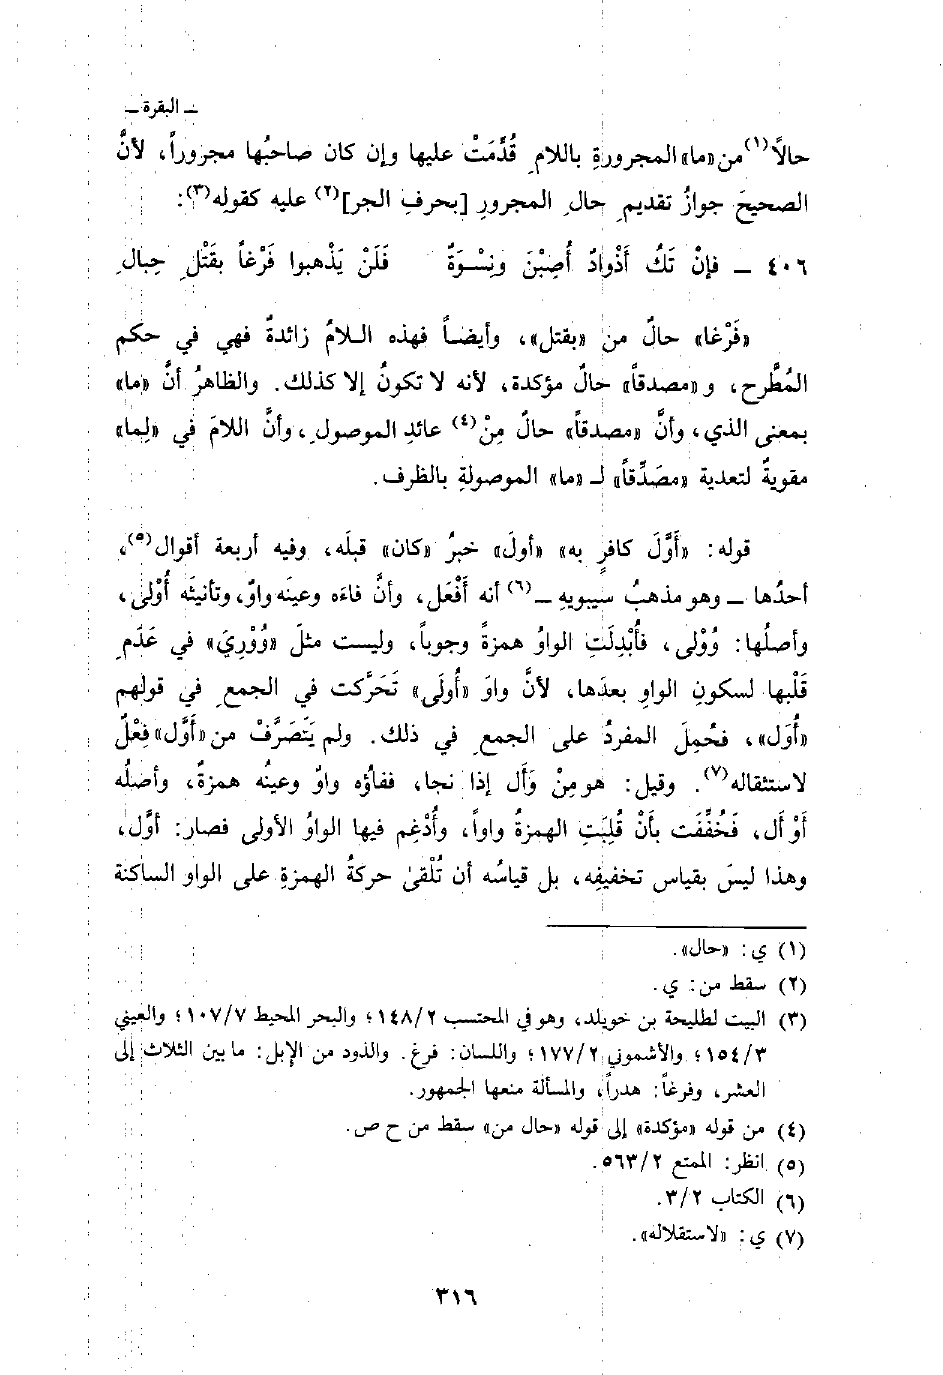 ـ البقرة ـ
حالاً(١) من «ما» المجرورةِ باللامِ قُدِّمَتْ عليها وإن كان صاحبُها مجروراً، لأنَّ
الصحيحَ جوازُ تقديمِ حالِ المجرورِ [بحرفِ الجر](٢) عليه كقولِه(٣):
٤٠٦ ـ فإنْ تَكُ أَذْوادٌ أُصِبْنَ ونِسْوَةٌ فَلَنْ يَذْهبوا فَرْغاً بقَتْلِ حِبالِ
«فَرْغا» حالٌ من «بقتل»، وأيضاً فهذه اللامُ زائدةٌ فهي في حكم
المُطَّرح، و«مصدقاً» حالٌ مؤكدة، لأنه لا تكونُ إلا كذلك. والظاهرُ أنَّ «ما»
بمعنى الذي، وأنَّ «مصدقاً» حالٌ مِنْ(٤) عائدِ الموصولِ، وأنَّ اللامَ في «لِما»
مقويةٌ لتعدية «مصَدِّقاً» لـ «ما» الموصولةِ بالظرف.
قوله: «أَوَّلَ كافرٍ به» «أولَ» خبرُ «كان» قبلَه، وفيه أربعة أقوال(٥)،
أحدُها ـ وهو مذهبُ سيبويهِ ـ(٦) أنه أَفْعَل، وأنَّ فاءَه وعينَه واوٌ، وتأنيثَه أُوْلى،
وأصلُها: وُوْلى، فأُبْدِلَتِ الواوُ همزةً وجوباً، وليست مثلَ «وُوْرِيَ» في عَدَمِ
قَلْبِها لسكونِ الواوِ بعدَها، لأنَّ واوَ «أُولَى» تَحَرَّكت في الجمعِ في قولهم
«أُوَل»، فحُمِلَ المفردُ على الجمعِ في ذلك. ولم يَتَصَرَّفْ من «أَوَّل» فِعْلٌ
لاستثقاله(٧). وقيل: هو مِنْ وَأَل إذا نجا، ففاؤه واوٌ وعينُه همزةٌ، وأصلُه
أَوْأَل، فَخُفِّفَت بأَنْ قُلِبَتِ الهمزةُ واواً، وأُدْغِم فيها الواوُ الأولى فصار: أوَّل،
وهذا ليسَ بقياس تخفيفِه، بل قياسُه أن تُلْقىٰ حركةُ الهمزةِ على الواو الساكنة
(١) ي: «حال».
(٢) سقط من: ي.
(٣) البيت لطليحة بن خويلد، وهو في المحتسب ١٤٨/٢؛ والبحر المحيط ١٠٧/٧؛ والعيني
١٥٤/٣؛ والأشموني ١٧٧/٢؛ واللسان: فرغ. والذود من الإبل: ما بين الثلاث إلى
العشر، وفرغاً: هدراً، والمسألة منعها الجمهور.
(٤) من قوله «مؤكدة» إلى قوله «حال من» سقط من ح ص.
(٥) انظر: الممتع ٥٦٣/٢.
(٦) الكتاب ٣/٢.
(٧) ي: «لاستقلاله».
٣١٦